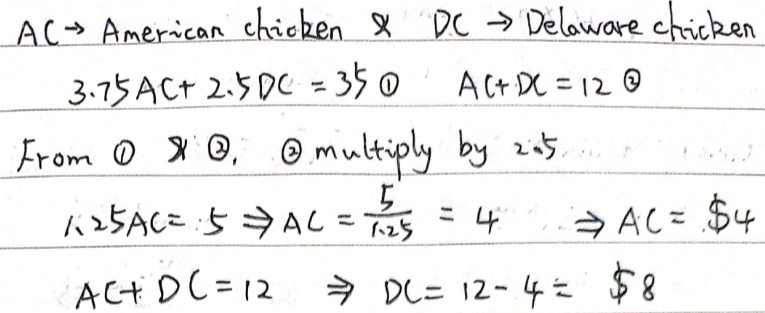 AC → American chicken & DC → Delaware chicken
3.75AC + 2.5DC = 35 ① AC + DC = 12 ②
From ① & ②, ② multiply by 2.5
1.25AC = 5 ⇒ AC = 5/1.25 = 4 ⇒ AC = $4
AC + DC = 12 ⇒ DC = 12 - 4 = $8